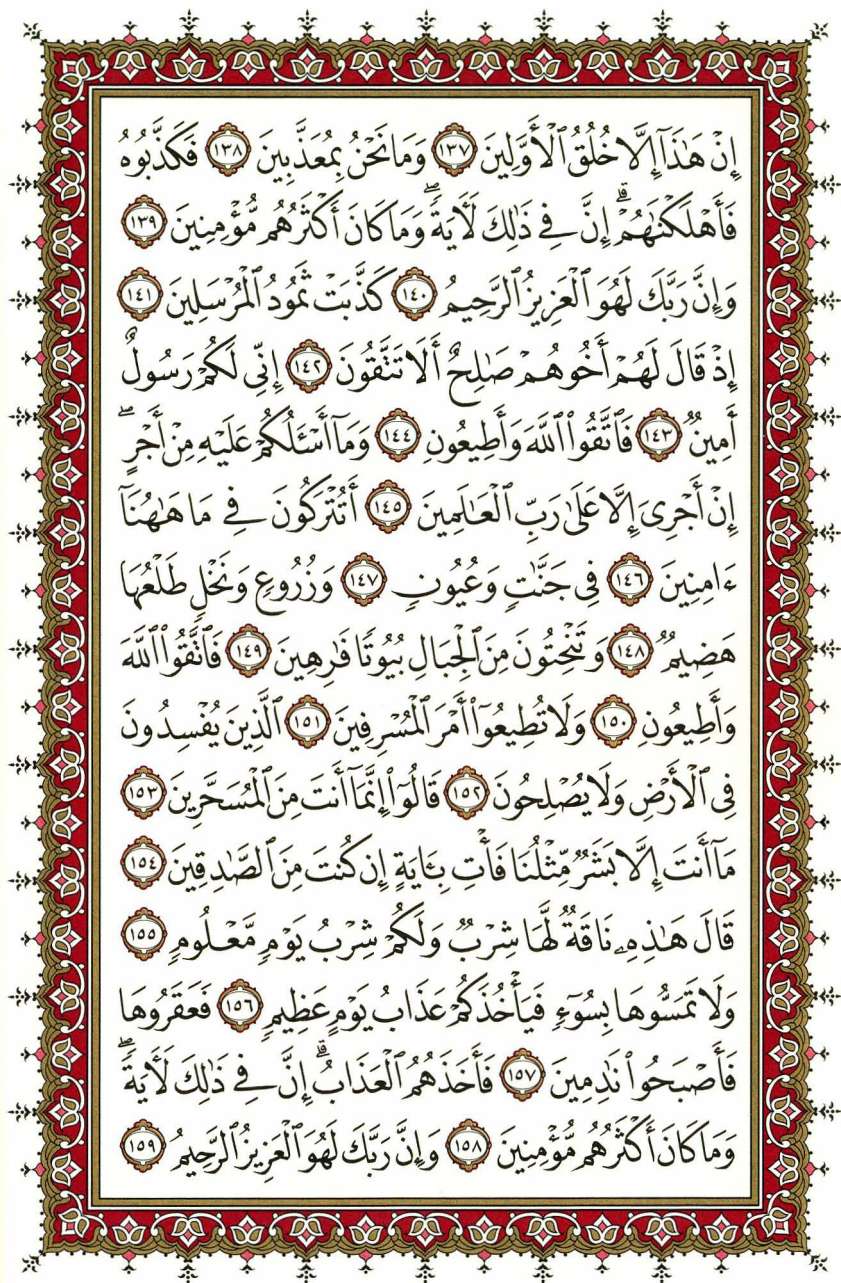 إِنْ هَٰذَآ إِلَّا خُلُقُ ٱلْأَوَّلِينَ ١٣٧ وَمَا نَحْنُ بِمُعَذَّبِينَ ١٣٨ فَكَذَّبُوهُ
فَأَهْلَكْنَٰهُمْ ۗ إِنَّ فِي ذَٰلِكَ لَءَايَةً ۖ وَمَا كَانَ أَكْثَرُهُم مُّؤْمِنِينَ ١٣٩
وَإِنَّ رَبَّكَ لَهُوَ ٱلْعَزِيزُ ٱلرَّحِيمُ ١٤٠ كَذَّبَتْ ثَمُودُ ٱلْمُرْسَلِينَ ١٤١
إِذْ قَالَ لَهُمْ أَخُوهُمْ صَٰلِحٌ أَلَا تَتَّقُونَ ١٤٢ إِنِّي لَكُمْ رَسُولٌ
أَمِينٌ ١٤٣ فَٱتَّقُوا۟ ٱللَّهَ وَأَطِيعُونِ ١٤٤ وَمَآ أَسْـَٔلُكُمْ عَلَيْهِ مِنْ أَجْرٍ ۖ
إِنْ أَجْرِىَ إِلَّا عَلَىٰ رَبِّ ٱلْعَٰلَمِينَ ١٤٥ أَتُتْرَكُونَ فِي مَا هَٰهُنَآ
ءَامِنِينَ ١٤٦ فِي جَنَّٰتٍ وَعُيُونٍ ١٤٧ وَزُرُوعٍ وَنَخْلٍ طَلْعُهَا
هَضِيمٌ ١٤٨ وَتَنْحِتُونَ مِنَ ٱلْجِبَالِ بُيُوتًا فَٰرِهِينَ ١٤٩ فَٱتَّقُوا۟ ٱللَّهَ
وَأَطِيعُونِ ١٥٠ وَلَا تُطِيعُوٓا۟ أَمْرَ ٱلْمُسْرِفِينَ ١٥١ ٱلَّذِينَ يُفْسِدُونَ
فِي ٱلْأَرْضِ وَلَا يُصْلِحُونَ ١٥٢ قَالُوٓا۟ إِنَّمَآ أَنتَ مِنَ ٱلْمُسَحَّرِينَ ١٥٣
مَآ أَنتَ إِلَّا بَشَرٌ مِّثْلُنَا فَأْتِ بِـَٔايَةٍ إِن كُنتَ مِنَ ٱلصَّٰدِقِينَ ١٥٤
قَالَ هَٰذِهِۦ نَاقَةٌ لَّهَا شِرْبٌ وَلَكُمْ شِرْبُ يَوْمٍ مَّعْلُومٍ ١٥٥
وَلَا تَمَسُّوهَا بِسُوٓءٍ فَيَأْخُذَكُمْ عَذَابُ يَوْمٍ عَظِيمٍ ١٥٦ فَعَقَرُوهَا
فَأَصْبَحُوا۟ نَٰدِمِينَ ١٥٧ فَأَخَذَهُمُ ٱلْعَذَابُ ۗ إِنَّ فِي ذَٰلِكَ لَءَايَةً ۖ
وَمَا كَانَ أَكْثَرُهُم مُّؤْمِنِينَ ١٥٨ وَإِنَّ رَبَّكَ لَهُوَ ٱلْعَزِيزُ ٱلرَّحِيمُ ١٥٩